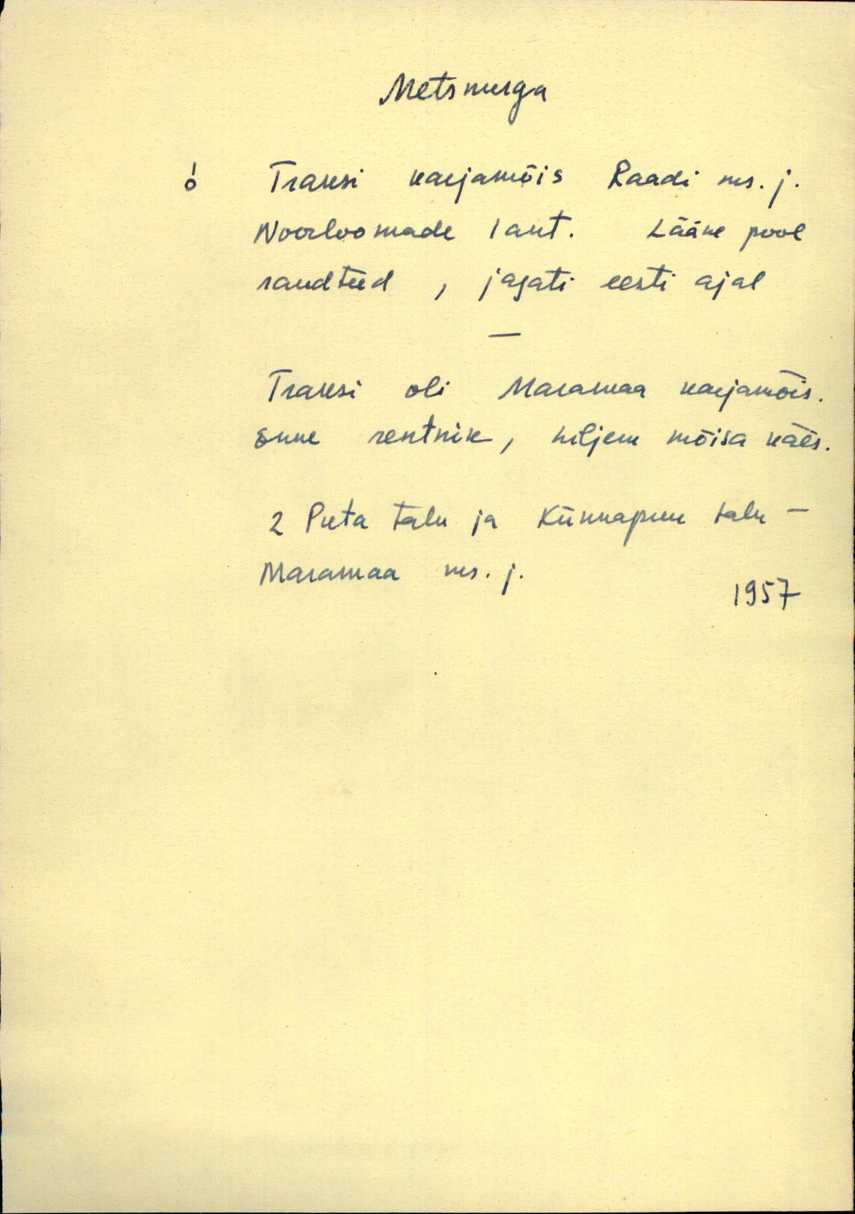 Metsnurga
ó Traksi karjamõis Raadi ms. j.
Noorloomade laut. Lääne pool
raudteed, jagati eesti ajal
—
Traksi oli Maramaa karjamõis.
Enne rentnik, hiljem mõisa käes.
2 Puta talu ja Künnapuu talu —
Maramaa ms. j.
1957